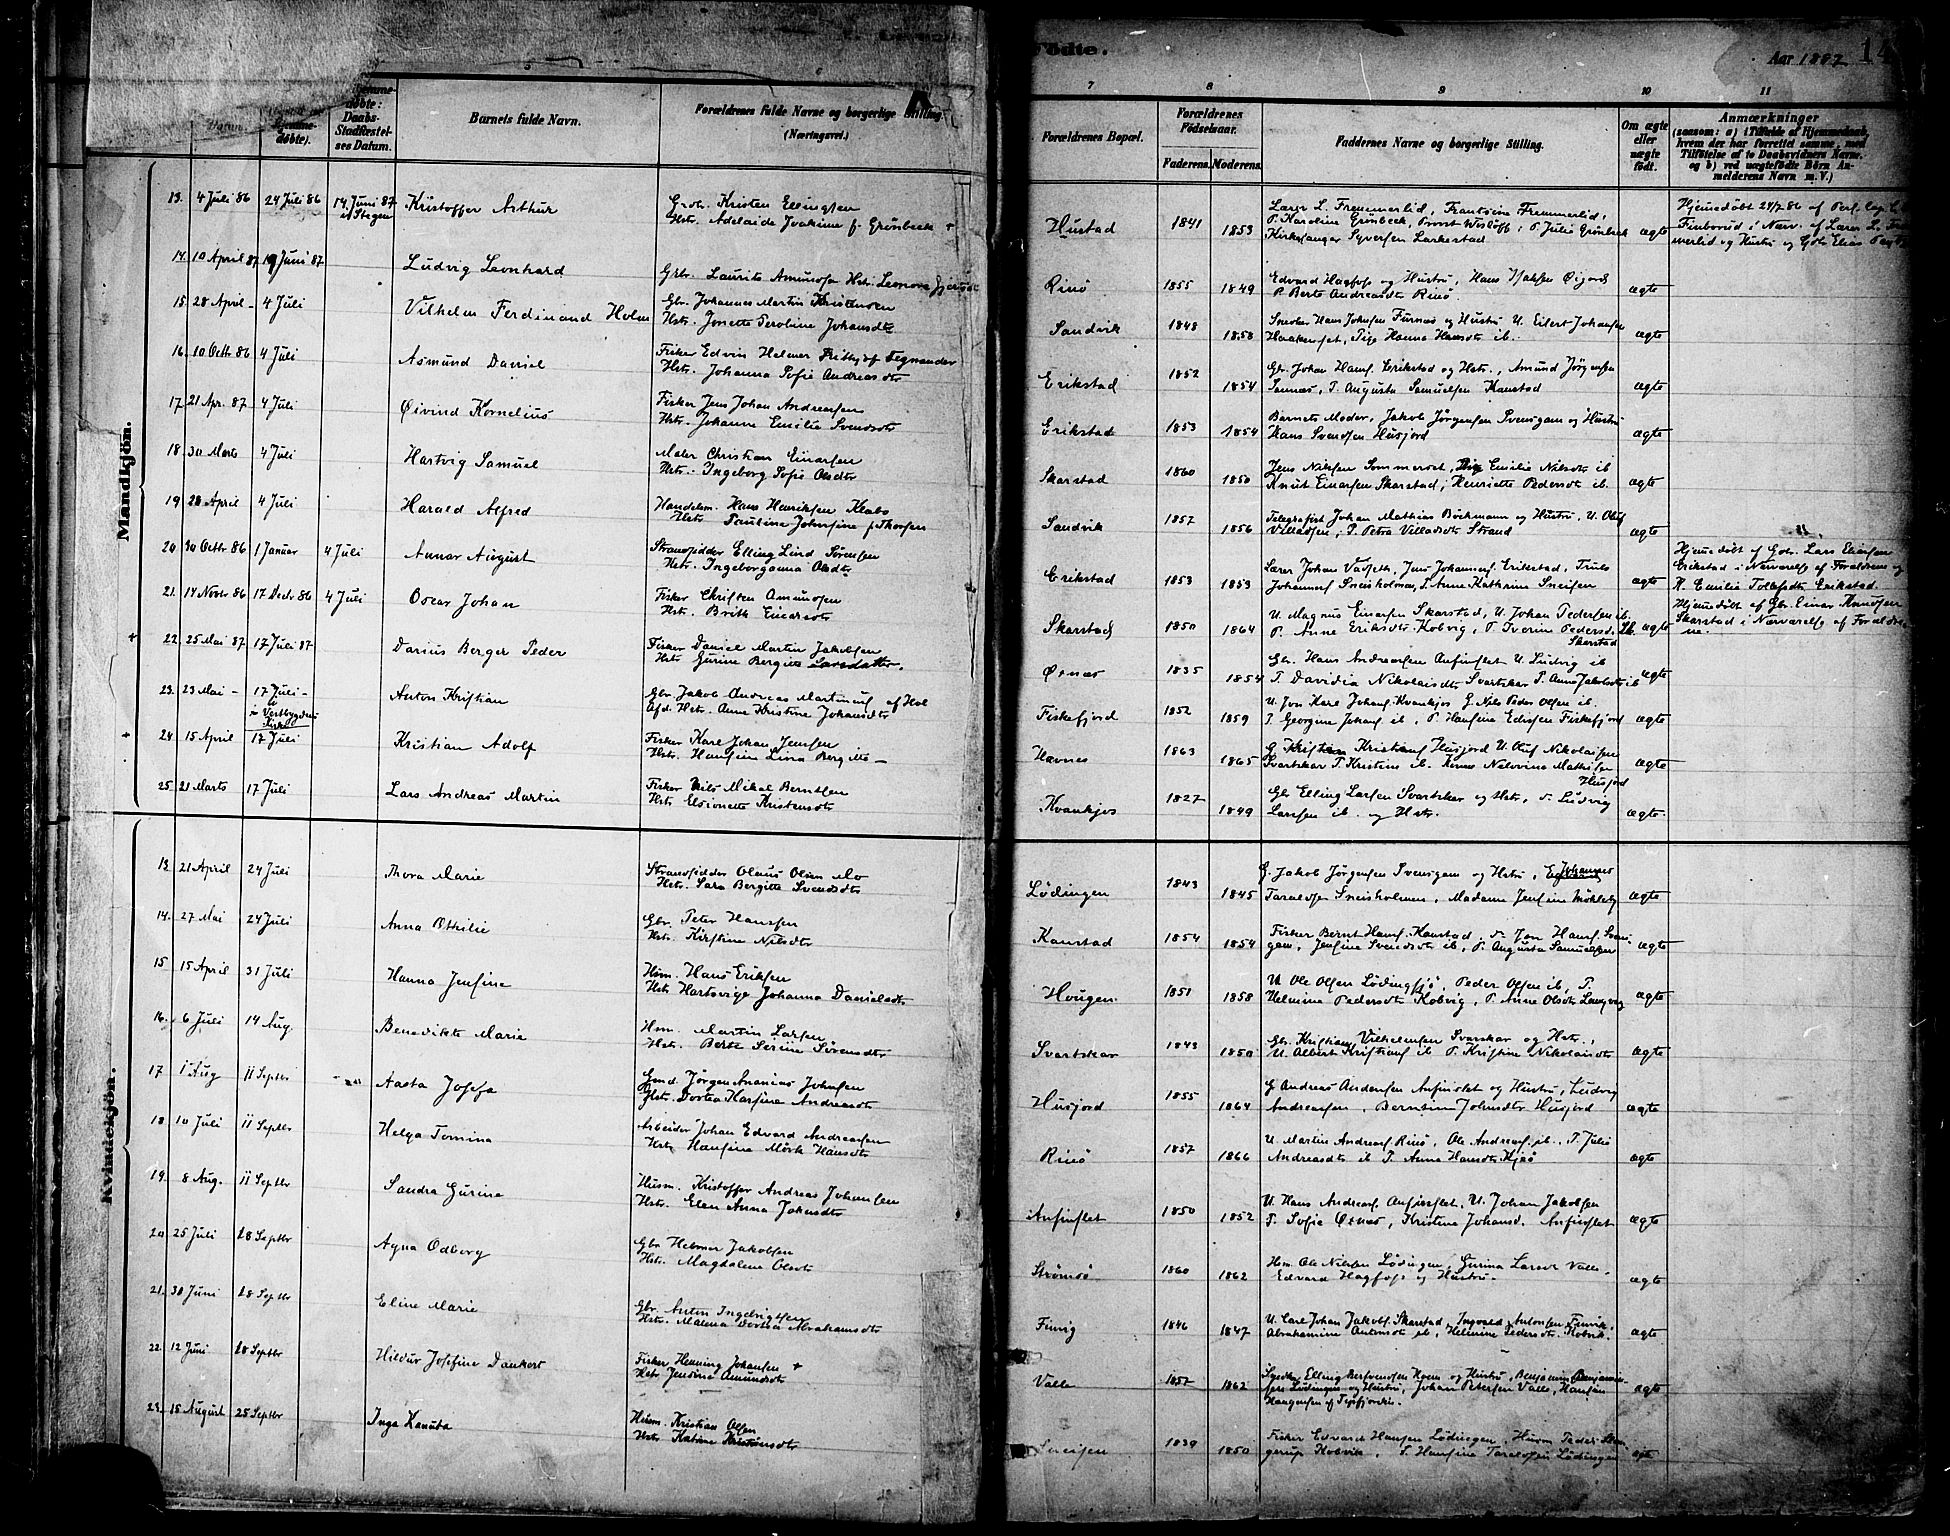 Födte.
Aar 1887
14
5
6
7
8
9
10
11
Datum
Hjemme-
döbte:
Daabs-
Stadfæstel-
ses Datum.
Barnets fulde Navn.
Forældrenes fulde Navne og borgerlige Stilling.
(Næringsvei.)
Forældrenes Bopæl.
Forældrenes
Födselsaar.
Faderens.
Moderens.
Faddernes Navne og borgerlige Stilling.
Om ægte
eller
uægte
födt.
Anmærkninger
(saasom: a) i Tilfælde af Hjemmedaab,
hvem der har forrettet samme, med
Tilföielse af to Daabsvidners Navne.
og b) ved uægtefödte Börn An-
melderens Navn m. V.)
Mandkjön.
13. 4 Juli 86 24 Juli 86 14 Juni 87 i Stegen Kristoffer Arthur
Kristen Ellingsen
Hstr. Adelaide Joakime f. Grønbeck
Hustad 1841 1853
Lærer L. Fremmerlid, Frantsine Fremmerlid,
P. Karoline Grønbeck, Provst Wisløff, P. Julie Grønbeck
Kirkesanger Syversen Lærkestad
ægte
Hjemmedøbt 24/7 86 af Pers. Cap.
14. 10 April 87 19 Juni 87 Ludvig Leonhard
Gbr. Laurits Amundsen Hstr. Leonora
Rinø 1855 1849
Edvard Hagfors og Hustru, Hans
P. Berte Andreasdt Rinø
ægte
15. 28 April - 4 Juli Vilhelm Ferdinand Holm
Gbr. Johannes Martin Kristensen
Hstr. Jonette Serobine Johansdtr
Sandvik 1848 1850
Snedker Hans Johnsen Furnes og Hustru U. Eilert Johansen
Haakenset, Pige Hanna Hansdt ib.
ægte
16. 10 Octb 86 4 Juli Asmund Daniel
Fisker Edvin Helmer Fritjof Tegnander
Hstr. Johanna Sofie Andreasdtr
Erikstad 1852 1854
Gbr. Johan Hansf. Erikstad og Hstr., Amund Jørgensen
Sennæs, P. Augusta Samuelsen Kanstad
ægte
17. 21 Apr. 87 4 Juli Øivind Kornelius
Fisker Jens Johan Andreasen
Hstr. Johanne Emilie Svendsdtr
Erikstad 1853 1854
Barnets Moder, Jakob Jørgensen Svensgam og Hustru
Hans Svendsen Husjord
ægte
18 30 Marts 4 Juli Hartvig Samuel
Maler Christian Einarsen
Hstr. Ingeborg Sofie Olsdtr
Skarstad 1860 1850
Jens Nilsen Sommerset, Pig Emilie Nilsdt ib
Knut Einarsen Skarstad, Henriette Pedersdt ib.
ægte
19 28 April 4 Juli Harald Alfred
Handelsm. Hans Henriksen Klabo
Hstr. Pauline Johnsine f. Thorsen
Sandvik 1857 1856
Telegrafist Johan Mathias Bøckmann og Hustru, U. Oluf
Villadsen, P. Petra Villadsdt Strand
ægte
20 30 Octb 86 1 Januar 4 Juli Annar August
Strandsidder Elling Lind Sørensen
Hstr. Ingeborganna Olsdtr
Erikstad 1853 1853
Lærer Johan Vadseth, Jens Johannesf. Erikstad, Truls
Johannesf Sneisholmen, P. Anne Kathrine Sneisen
ægte
Hjemmedøbt af Gbr. Lars Eliassen
Erikstad i Nærværelse af Forældrene og
K. Emilie Tollefsdt Erikstad
21. 14 Novb 86 17 Decb 86 4 Juli Oscar Johan
Fisker Christen Amundsen
Hstr. Brith Eindrsdtr
Skarstad 1850 1864
U. Magnus Einarsen Skarstad, U. Johan Pedersen ib.
P. Anne Eriksdtr Kobvig, P. Iverine Pedersd. Skarstad
ægte
Hjemmedøbt af Gbr. Einar Knudsen
Skarstad i Nærværelse af Forældre-
ne.
22. 25 Mai 87 17 Juli 87 Darius Berger Peder
Fisker Daniel Martin Jakobsen
Hstr Gurine Bergitte Larsdatter
Øxnæs 1835 1854
Gbr. Hans Andreassen Anfinslet U. Ludvig ib
P. Davidia Nikolaisdt Svartskar P. Anne Jakobsdt ib
ægte
23. 23 Mai - 17 Juli - i Vestbygdens Kirke Anton Kristian
Gbr Jakob Andreas Martinusf af Hol
Afd. Hstr. Ane Kristine Johansdtr
Fiskefjord 1852 1859
U. Jon Karl Johansf Kvankjos G. Nils Peder Olsen ib.
P. Georgine Johansf ib, P. Hansine Edisen Fiskefjord
ægte
24. 15 April 17 Juli Kristian Adolf
Fisker Karl Johan Jensen
Hstr. Hansine Lina Bergitte -
Havnes 1863 1865
G Kristian Kristiansf Husjord U. Oluf Nikolaisen
Svartskar P. Kristine ib. Konen Nilovine Mathisen Husjord
ægte
25. 21 Marts 17 Juli Lars Andreas Martin
Fisker Nils Mikal Berntsen
Hstr Elsionette Kristensdtr
Kvankjos 1827 1849
Gbr Elling Larsen Svartskar og Hstr, Ludvig
Larsen ib. og Hstr.
ægte
Kvindekjön.
13. 21 April 24 Juli Thora Marie
Strandsidder Olaus Olsen Mo
Hstr. Sara Bergitte Svendsdtr
Lödingen 1843 1845
G. Jakob Jørgensen Svensgam og Hstr, Johannes
Taraldsen Sneisholmen, Madame Jensine
ægte
14. 27 Mai 24 Juli Anna Othilie
Gbr. Peter Hanssen
Hstr. Kirstine Nilsdtr
Kanstad 1854 1854
Fisker Bernt Hansf. Kanstad, Jon Hansf. Svens-
gam, Jensine Svendsdt ib, P. Augusta Samuelsen
ægte
15 15 April 31 Juli Hanna Jensine
Hsm. Hans Eriksen
Hstr Hartvige Johanna Danielsdtr
Hougen 1851 1858
U. Ole Olsen Lödings, Peder Olsen ib, P.
Helmine Pedersdt Kobvig, P. Anne Olsdt
ægte
16. 6 Juli 14 Aug. Benedikte Marie
Hsm. Martin Larsen
Hstr. Berte Serine Sørensdtr
Svartskar 1843 1850
Gbr. Kristian Vilhelmsen Svarskar og Hstr.,
U. Albert Kristiansf ib P. Kristine Nikolaisdt
ægte
17 1 Aug 11 Septbr Aasta Josefa
Gmd. Jørgen Ananias Johnsen
Hstr. Dortea Karsine Andreasdtr
Husjord 1855 1864
G Andreas Andersen Anfinslet og Hustru, Ludvig
Andreassen, Berntine Johnsdtr Husjord
ægte
18 10 Juli 11 Septbr Helga Tomina
Arbeider Johan Edvard Andreassen
Hstr. Hansine Mörk Hansdtr
Rinø 1857 1866
U. Martin Andreasf. Rinø, Ole Andreasf. ib., P. Julie
Andreasdt ib P. Anna Hansdtr
ægte
19. 8 Aug. 11 Septbr Sandra Gurine
Husm. Kristoffer Andreas Johansen
Hstr. Elen Anna Johnsdtr
Anfinslet 1850 1852
U. Hans Andreasf. Anfinslet, U. Johan Jakobsen
P. Sofie Øxnæs, Kristine Johansd. Anfinslet
ægte
20. 25 Juli 18 Septbr Agna Odborg
Gbr Helmer Jakobsen
Hstr. Magdalene Olsdt
Strømsø 1860 1862
Hsm. Ole Nilsen Lödingen, Gurina Larsdt Valle,
Edvard Hagfors og Hustru.
ægte
21. 30 Juni 18 Septbr Eline Marie
Gbr. Anton Ingebrigtsen
Hstr. Malena Dortea Abrahamsdtr
Finvig 1846 1847
U. Carl Johan Jakobsf. Skarstad, Ingvald Antonsen Finvik,
Abrahamine Antonsdt ib, Helmine Pedersdt. Kobvik.
ægte
22. 12 Juni 18 Septbr Hildur Josefine Dankert
Fisker Henning Johansen
Hstr Jensine Amundsdt
Valle 1857 1862
Lödingen og Hustru, Johan Petersen Valle,
ægte
23. 15 August 25 Septbr Inga Kanuta
Husm. Kristian Olsen
Hstr Katrine Kristensdtr
Sneisen 1839 1850
Fisker Edvard Hansen Lödingen, Husm Peder
Kobvik, P. Hansine Taraldsen Lödingen
ægte